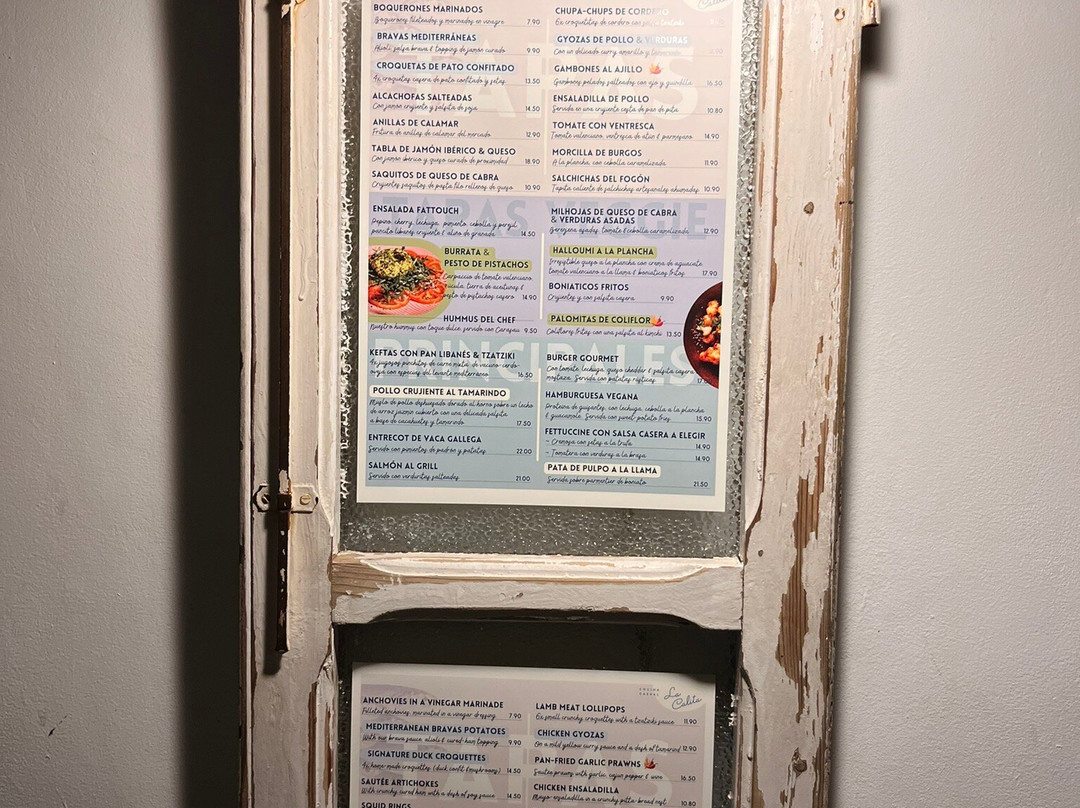 BOQUERONES MARINADOS
Boquerones fileteados y marinados en vinagre 7.90
BRAVAS MEDITERRÁNEAS
Alioli, salsa brava & topping de jamón curado 9.90
CROQUETAS DE PATO CONFITADO
4x croquetas casera de pato confitado y setas 13.50
ALCACHOFAS SALTEADAS
Con jamón crujiente y salsita de soja 14.50
ANILLAS DE CALAMAR
Fritura de anillas de calamar del mercado 12.90
TABLA DE JAMÓN IBÉRICO & QUESO
Con jamón ibérico y queso curado de proximidad 18.90
SAQUITOS DE QUESO DE CABRA
Crujientes saquitos de pasta filo rellenos de queso 10.90
CHUPA-CHUPS DE CORDERO
6x croquetitas de cordero con
GYOZAS DE POLLO & VERDURAS
Con un delicado curry amarillo y
GAMBONES AL AJILLO
Gambones pelados salteados con ajo y guindilla 16.50
ENSALADILLA DE POLLO
Servida en una crujiente cesta de pan de pita 10.80
TOMATE CON VENTRESCA
Tomate valenciano, ventresca de atún & parmesano 14.90
MORCILLA DE BURGOS
A la plancha, con cebolla caramelizada 11.90
SALCHICHAS DEL FOGÓN
Tapita caliente de salchichas artesanales ahumadas 10.90
TAPAS VEGGIE
ENSALADA FATTOUCH
Pepino, cherry, lechuga, pimiento, cebolla y perejil,
pancito libanes crujiente & aliño de granada 14.50
BURRATA &
PESTO DE PISTACHOS
Carpaccio de tomate valenciano,
rúcula, tierra de aceitunas &
pesto de pistachos casero 14.90
HUMMUS DEL CHEF
Nuestro hummus con toque dulce, servido con Carasau 9.50
MILHOJAS DE QUESO DE CABRA
& VERDURAS ASADAS
Berenjena asadas, tomate & cebolla caramelizada 12.90
HALLOUMI A LA PLANCHA
Irresistible queso a la plancha con crema de aguacate,
tomate valenciano a la llama & boniatitos fritos 17.90
BONIATOS FRITOS
Crujientes y con salsita casera 9.90
PALOMITAS DE COLIFLOR
Coliflores fritas con una salsita al kimchi 13.50
PRINCIPALES
KEFTAS CON PAN LIBANÉS & TZATZIKI
4x jugosos pinchitos de carne mixta de vacuno-cerdo-
oveja con especias del levante mediterraneo 16.50
POLLO CRUJIENTE AL TAMARINDO
Muslo de pollo deshuesado dorado al horno sobre un lecho
de arroz jazmin cubierto con una delicada salsita
a base de cacahuetes y tamarindo 17.50
ENTRECOT DE VACA GALLEGA
Servido con pimientos de padrón y patatas 22.00
SALMÓN AL GRILL
Servido con verduritas salteadas 21.00
BURGER GOURMET
Con tomate, lechuga, queso cheddar & salsita casera
mostaza. Servida con patatas rústicas
HAMBURGUESA VEGANA
Proteina de guisantes, con lechuga, cebolla a la plancha
& guacamole. Servida con sweet-potato fries 15.90
FETTUCCINE CON SALSA CASERA A ELEGIR
- Cremosa con setas a la trufa 14.90
- Tomatera con verduras a la brasa 14.90
PATA DE PULPO A LA LLAMA
Servida sobre parmentier de boniato 21.50
COCINA
La
Calita
ANCHOVIES IN A VINEGAR MARINADE
Filleted anchovies, marinated in a vinegar dressing 7.90
MEDITERRANEAN BRAVAS POTATOES
With our brava sauce, alioli & cured-ham topping 9.90
SIGNATURE DUCK CROQUETTES
4x home-made croquettes (duck confit & mushrooms) 14.50
SAUTÉE ARTICHOKES
With crunchy cured ham with a dash of soy sauce 14.50
SQUID RINGS
LAMB MEAT LOLLIPOPS
6x small crunchy croquettes with a teutzila sauce 11.90
CHICKEN GYOZAS
On a mild yellow curry sauce and a dash of tamarind 12.90
PAN-FRIED GARLIC PRAWNS
Sautée prawns with garlic, cajun pepper & wine 16.50
CHICKEN ENSALADILLA
Mayo-ensaladilla in a crunchy pitta-bread nest 10.80